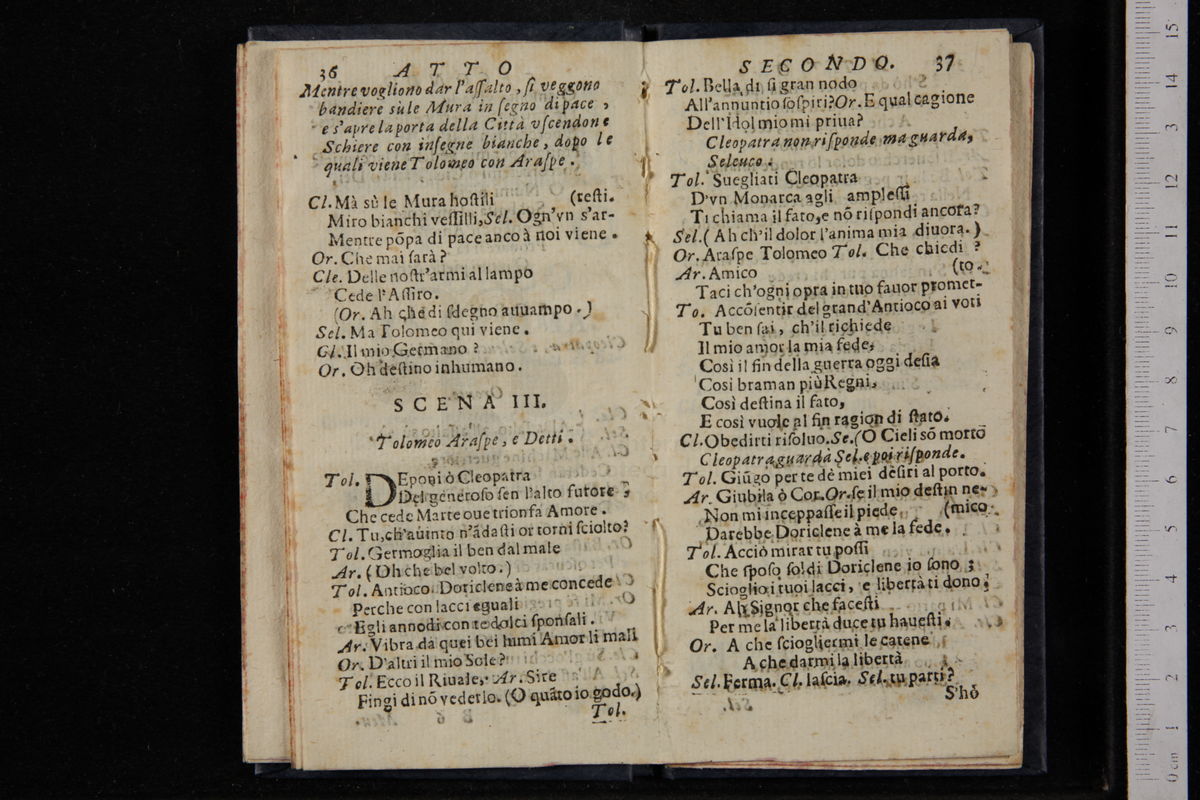 36 ATTO
Mentre vogliono dar l'aſſalto, ſi veggono
bandiere sù le Mura in ſegno di pace,
e s'apre la porta della Città vſcendone
Schiere con inſegne bianche, dopo le
quali viene Tolomeo con Araſpe.
Cl. Mà sù le Mura hoſtili (reſti.
Miro bianchi veſſilli, Sel. Ogn'vn s'ar-
Mentre põpa di pace anco à noi viene.
Or. Che mai ſarà?
Cle. Delle noſtr'armi al lampo
Cede l'Aſſiro.
(Or. Ah che di ſdegno auuampo.)
Sel. Ma Tolomeo qui viene.
Cl. Il mio Germano?
Or. Oh deſtino inhumano.
SCENA III.
Tolomeo Araſpe, e Detti.
Tol. DEponi ò Cleopatra
Del generoſo ſen l'alto furore;
Che cede Marte oue trionfa Amore.
Cl. Tu, ch'auinto n'ãdaſti or torni ſciolto?
Tol. Germoglia il ben dal male
Ar. (Oh che bel volto.)
Tol. Antioco. Doriclene à me concede
Perche con lacci eguali
Egli annodi con te dolci ſponſali.
Ar. Vibra da quei bei lumi Amor li mali
Or. D'altri il mio Sole?
Tol. Ecco il Riuale, Ar. Sire
Fingi di nõ vederlo. (O quãto io godo.)
Tol.
SECONDO. 37
Tol. Bella di ſi gran nodo
All'annuntio ſoſpiri? Or. E qual cagione
Dell'Idol mio mi priua?
Cleopatra non riſponde ma guarda,
Seleuco.
Tol. Suegliati Cleopatra
D'vn Monarca agli ampleſſi
Ti chiama il fato, e nõ riſpondi ancora?
Sel. (Ah ch'il dolor l'anima mia diuora.)
Or. Araſpe Tolomeo Tol. Che chiedi?
Ar. Amico (to.
Taci ch'ogni opra in tuo fauor promet-
To. Accõſentir del grand'Antioco ai voti
Tu ben ſai, ch'il richiede
Il mio amor la mia fede,
Così il fin della guerra oggi deſia
Cosi braman più Regni,
Così deſtina il fato,
E così vuole al fin ragion di ſtato.
Cl. Obedirti riſoluo. Se. (O Cieli sõ morto
Cleopatra guarda Sel. e poi riſponde.
Tol. Giũgo per te dè miei deſiri al porto.
Ar. Giubila ò Cor. Or. ſe il mio deſtin ne-
Non mi inceppaſſe il piede (mico
Darebbe Doriclene à me la fede.
Tol. Acciò mirar tu poſſi
Che ſpoſo ſol di Doriclene io ſono;
Scioglio i tuoi lacci, e libertà ti dono;
Ar. Ah Signor che faceſti
Per me la libertà duce tu haueſti.
Or. A che ſciogliermi le catene
A che darmi la libertà
Sel. Ferma. Cl. laſcia. Sel. tu parti?
S'hò